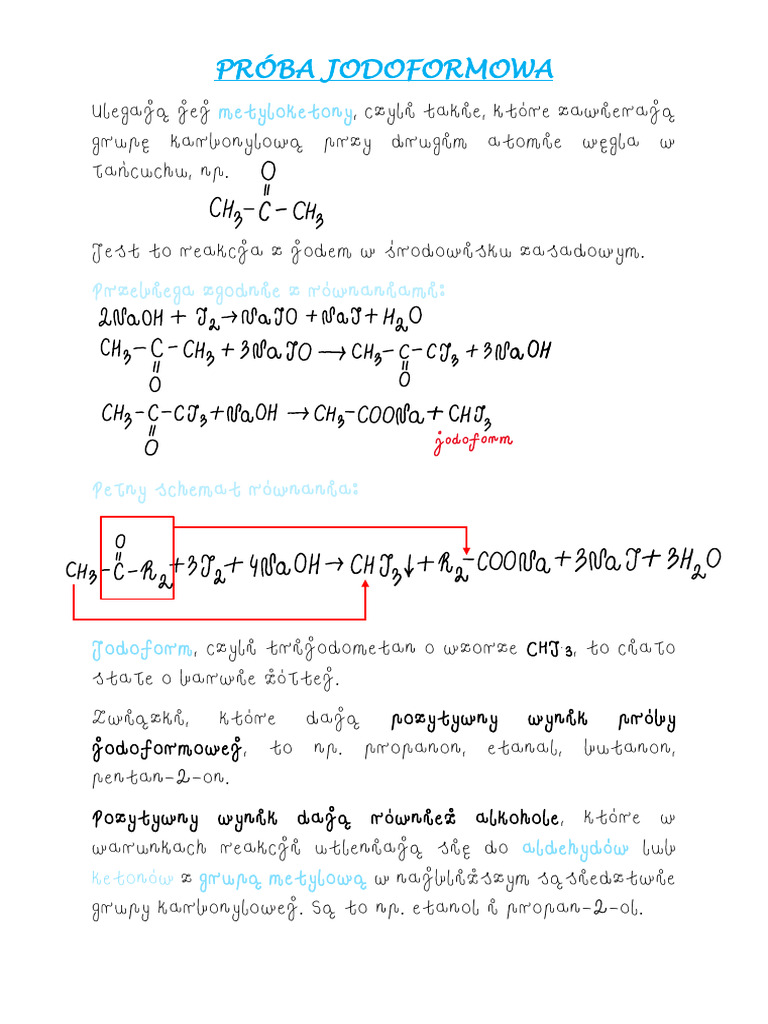 PRÓBA JODOFORMOWA
Ulegają jej metyloketony, czyli takie, które zawierają
grupę karbonylową przy drugim atomie węgla w
łańcuchu, np.
O
CH3-C-CH3
Jest to reakcja z jodem w środowisku zasadowym.
Przebiega zgodnie z równaniami:
2NaOH + J2→NaJO +NaJ+H2O
CH3-C-CH3+3NaJO→CH3-C-CJ3+3NaOH
O O
CH3-C-CJ3+NaOH→CH3-COONa+CHJ3
O jodoform
Pełny schemat równania:
O
CH3-C-R2+3J2+4NaOH→CHJ3↓+R2-COONa+3NaJ+3H2O
Jodoform, czyli trijodometan o wzorze CHJ3, to ciało
stałe o barwie żółtej.
Związki, które dają pozytywny wynik próby
jodoformowej, to np. propanon, etanal, butanon,
pentan-2-on.
Pozytywny wynik dają również alkohole, które w
warunkach reakcji utleniają się do aldehydów lub
ketonów z grupą metylową w najbliższym sąsiedztwie
grupy karbonylowej. Są to np. etanol i propan-2-ol.